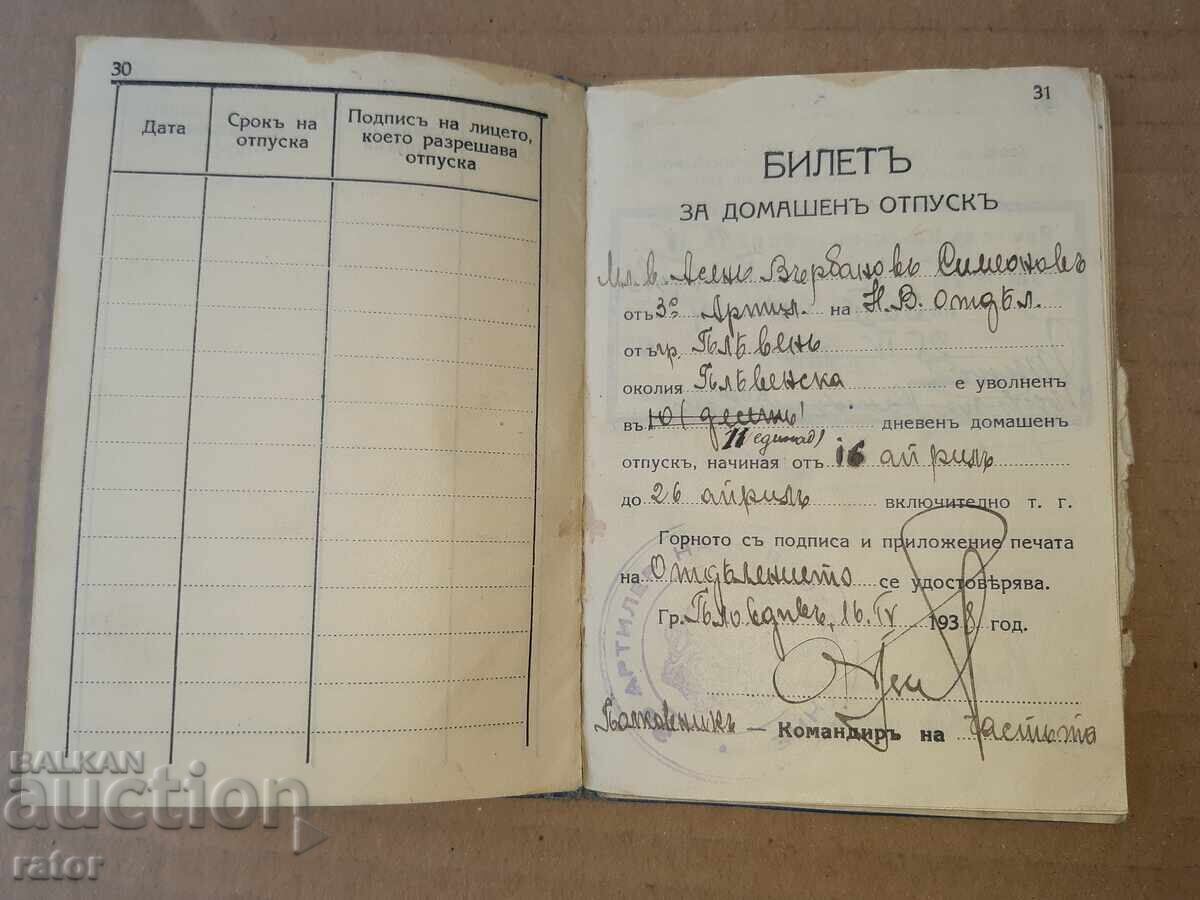 30
Дата
Срокъ на отпуска
Подписъ на лицето, което разрешава отпуска
31
БИЛЕТЪ
ЗА ДОМАШЕНЪ ОТПУСКЪ
Мл. в. Асенъ Върбановъ Симеоновъ
отъ 3º Артил. на Н. В. отдѣл.
отъ гр. Плѣвенъ
околия Плѣвенска е уволненъ
въ 10 (десеть) дневенъ домашенъ
11 (единад)
отпускъ, начиная отъ 16 априлъ
до 26 априлъ включително т. г.
Горното съ подписа и приложение печата
на Отдѣлението се удостовѣрява.
Гр. Пловдивъ, 16. IV 1938 год.
Полковникъ — Командиръ на частьта
АРТИЛЕ
BALKAN
auction
rator